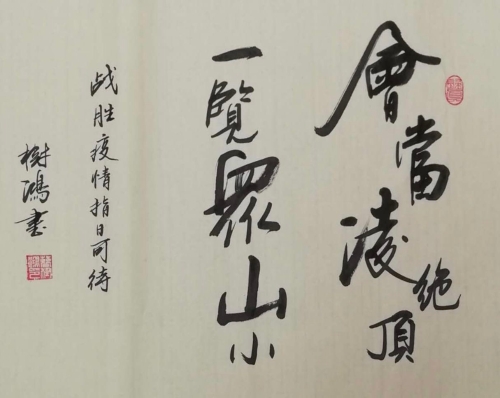 會當凌絕頂
一覽眾山小
战胜疫情指日可待
樹鴻书